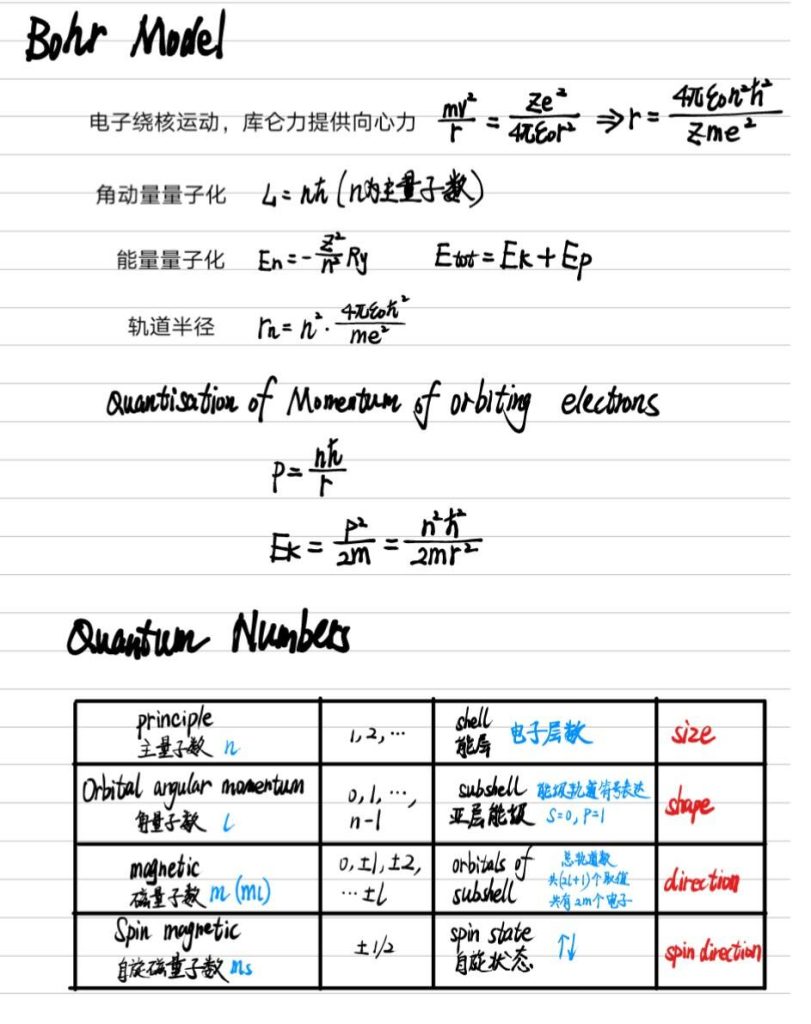 Bohr Model
电子绕核运动，库仑力提供向心力 mv²/r = Ze²/4πε₀r² ⇒ r = 4πε₀n²ħ²/Zme²
角动量量子化 L = nħ (n为主量子数)
能量量子化 En = -Z²/n² Ry Etot = Ek + Ep
轨道半径 rn = n² · 4πε₀ħ²/me²
Quantisation of Momentum of orbiting electrons
P = nħ/r
Ek = P²/2m = n²ħ²/2mr²
Quantum Numbers
principle
主量子数 n
1, 2, ⋯
shell
能层 电子层数
size
Orbital angular momentum
角量子数 l
0, 1, ⋯,
n-1
subshell
亚层能级
能级轨道符号表达
S=0, P=1
shape
magnetic
磁量子数 m (ml)
0, ±1, ±2,
⋯ ±l
orbitals of
subshell
总轨道数
共(2l+1)个取值
共有2m个电子
direction
Spin magnetic
自旋磁量子数 ms
±1/2
spin state
自旋状态. ↑↓
spin direction